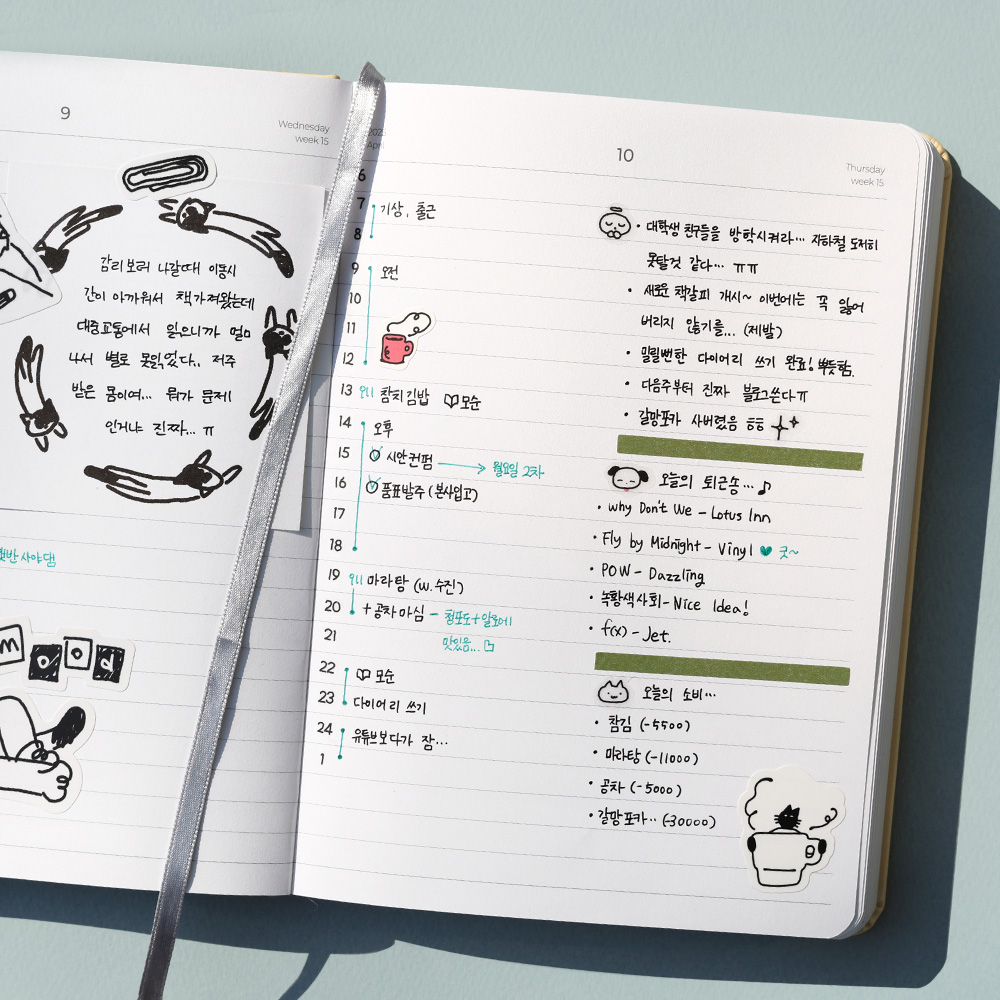 9
Wednesday
week 15
감리보러 나갈때 이동시
간이 아까워서 책가져왔는데
대중교통에서 읽으니까 멀미
나서 별로 못읽었다.. 저주
받은 몸이여... 뭐가 문제
인거냐 진짜... ㅠ
mood
April
10
Thursday
week 15
6
7 기상, 출근
8
9 오전
10
11
12
13 참치김밥 모순
14 오후
15 시안컨펌 → 월요일 2차
16 품표발주 (본사입고)
17
18
19 마라탕 (w. 수진)
20 + 공차마심 - 청포도+알로에
21 맛있음...
22 모순
23 다이어리 쓰기
24 유튜브보다가 잠...
1
• 대학생 친구들을 방학시켜라... 지하철 도저히
못탈것 같다... ㅠㅠ
• 새로운 책갈피 개시~ 이번에는 꼭 잃어
버리지 않기를... (제발)
• 밀릴뻔한 다이어리 쓰기 완료! 뿌듯함.
• 다음주부터 진짜 블로그쓴다ㅠ
• 갈망포카 사버렸음 ㅎㅎ
오늘의 퇴근송... ♪
• why Don't We - Lotus Inn
• Fly by Midnight - Vinyl ♥ 굿~
• POW - Dazzling
• 녹황색사회 - Nice Idea!
• f(x) - Jet.
오늘의 소비...
• 참김 (-5500)
• 마라탕 (-11000)
• 공차 (-5000)
• 갈망포카.. (-30000)